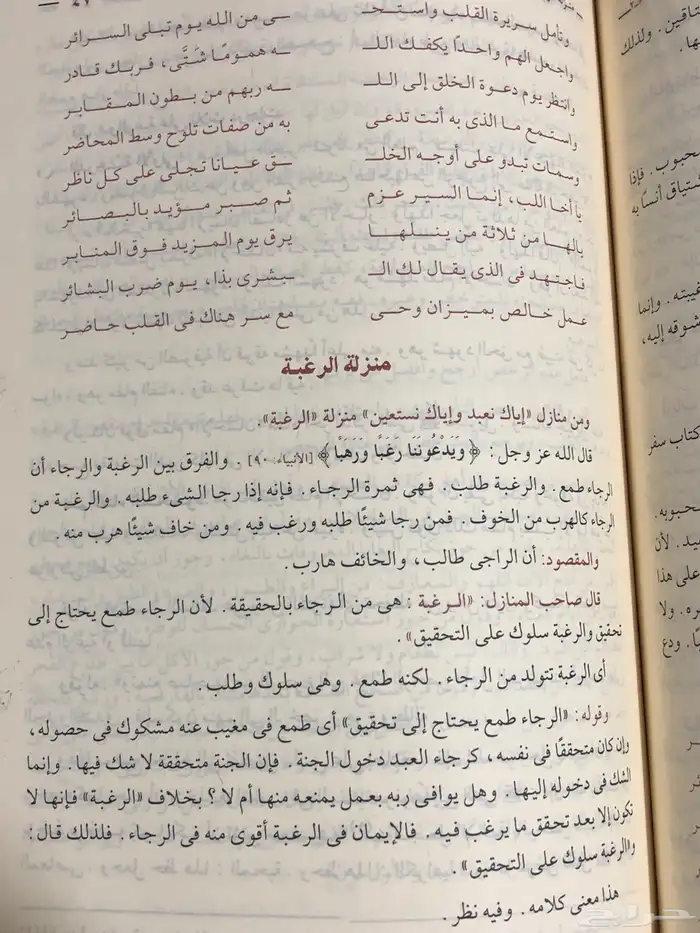 وتأمل سريرة القلب واستحـ ـى من الله يوم تبلى السرائر
واجعل الهم واحدًا يكفك اللـ ـه همومًا شتَّى، فربك قادر
وانتظر يوم دعوة الخلق إلى اللـ ـه ربهم من بطون المقابر
واستمع ما الذى به أنت تدعى به من صفات تلوح وسط المحاضر
وسمات تبدو على أوجه الخلـ ـق عيانا تجلى على كل ناظر
يا أخا اللب، إنما السير عزم ثم صبر مؤيد بالبصائر
يالها من ثلاثة من ينلها يرق يوم المزيد فوق المنابر
فاجتهد فى الذى يقال لك الـ ـبشرى بذا، يوم ضرب البشائر
عمل خالص بميزان وحى مع سر هناك فى القلب حاضر
منزلة الرغبة
ومن منازل «إياك نعبد وإياك نستعين» منزلة «الرغبة».
قال الله عز وجل: ﴿وَيَدْعُونَنَا رَغَبًا وَرَهَبًا﴾ [الأنبياء: ٩٠]. والفرق بين الرغبة والرجاء أن
الرجاء طمع. والرغبة طلب. فهى ثمرة الرجاء. فإنه إذا رجا الشىء طلبه. والرغبة من
الرجاء كالهرب من الخوف. فمن رجا شيئًا طلبه ورغب فيه. ومن خاف شيئًا هرب منه.
والمقصود: أن الراجى طالب، والخائف هارب.
قال صاحب المنازل: «الرغبة: هى من الرجاء بالحقيقة. لأن الرجاء طمع يحتاج إلى
تحقيق والرغبة سلوك على التحقيق».
أى الرغبة تتولد من الرجاء. لكنه طمع. وهى سلوك وطلب.
وقوله: «الرجاء طمع يحتاج إلى تحقيق» أى طمع فى مغيب عنه مشكوك فى حصوله،
وإن كان متحققًا فى نفسه، كرجاء العبد دخول الجنة. فإن الجنة متحققة لا شك فيها. وإنما
الشك فى دخوله إليها. وهل يوافى ربه بعمل يمنعه منها أم لا؟ بخلاف «الرغبة» فإنها لا
تكون إلا بعد تحقق ما يرغب فيه. فالإيمان فى الرغبة أقوى منه فى الرجاء. فلذلك قال:
«والرغبة سلوك على التحقيق».
هذا معنى كلامه. وفيه نظر.
تاقين. ولذلك
محبوب. فإذا
شتياق أنسًا به
غيبته. وإنما
شوقه إليه،
كتاب سفر
محبوبه.
يد. لأن
على هذا
ره. ولا
ودع
حراج